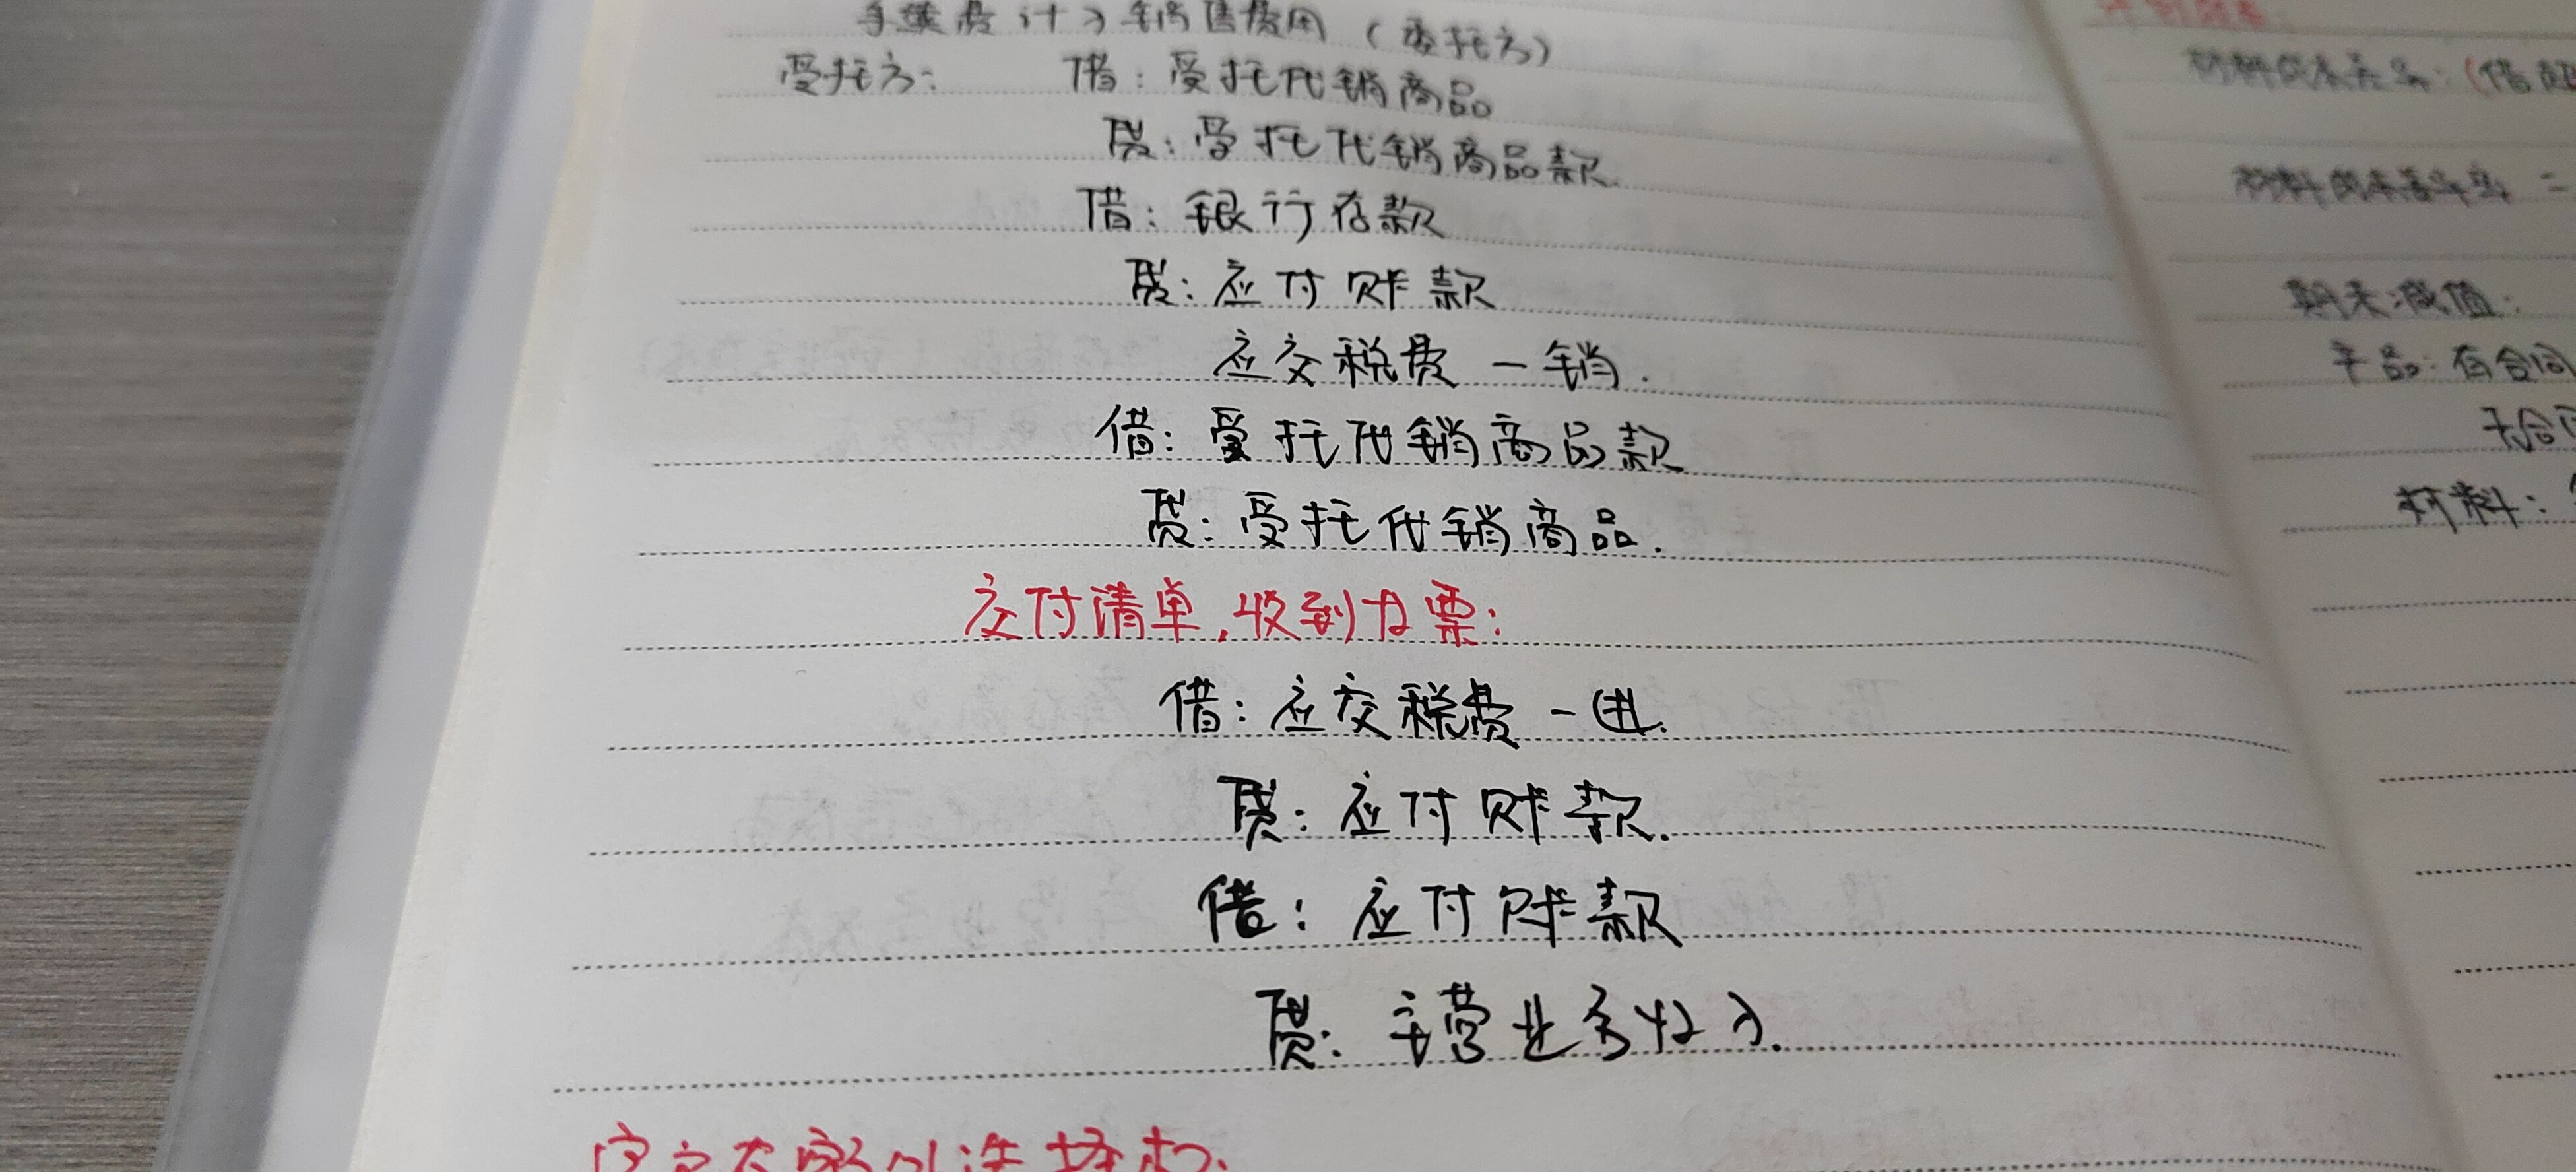 手续费计入销售费用（委托方）
受托方： 借：受托代销商品
贷：受托代销商品款.
借：银行存款
贷：应付账款
应交税费－销.
借：受托代销商品款
贷：受托代销商品.
交付清单,收到力票：
借：应交税费－进.
贷：应付账款.
借：应付账款
贷：主营业务收入.
材料成本差异：(借
材料成本差异率 =
期末减值：
产品：有合同
无合同
材料：